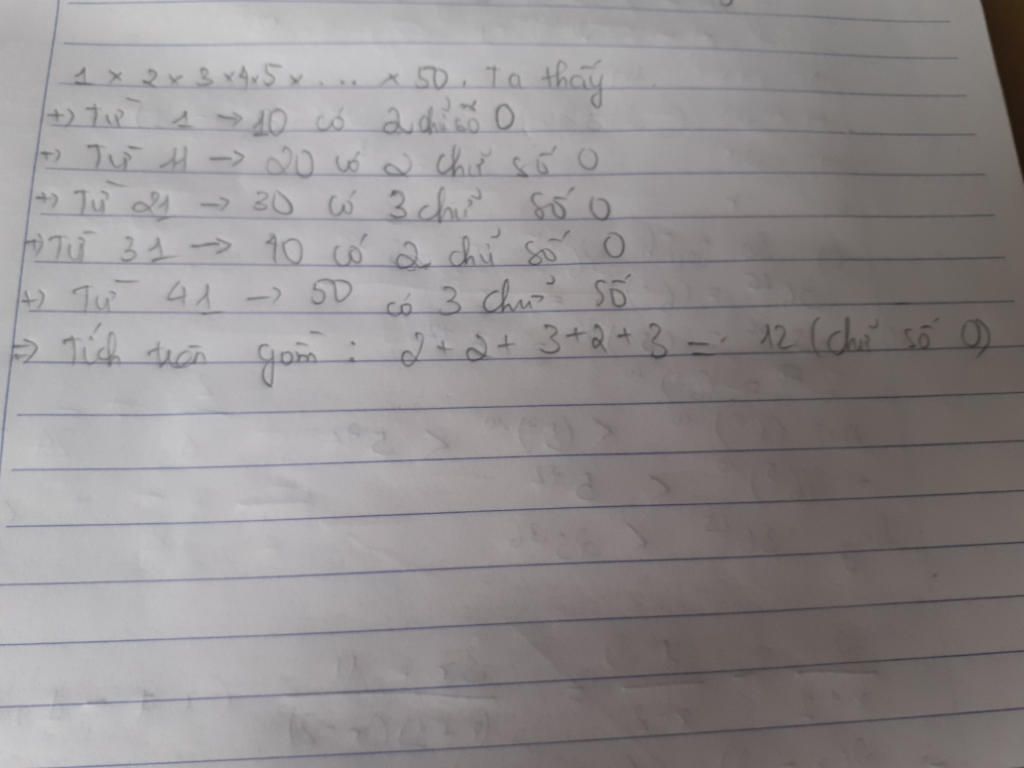 1 × 2 × 3 × 4 × 5 × .... × 50. Ta thấy
+) Từ 1 → 10 có 2 chữ số 0
+) Từ 11 → 20 có 2 chữ số 0
+) Từ 21 → 30 có 3 chữ số 0
+) Từ 31 → 40 có 2 chữ số 0
+) Từ 41 → 50 có 3 chữ số
=> Tích trên gồm : 2 + 2 + 3 + 2 + 3 = 12 (chữ số 0)